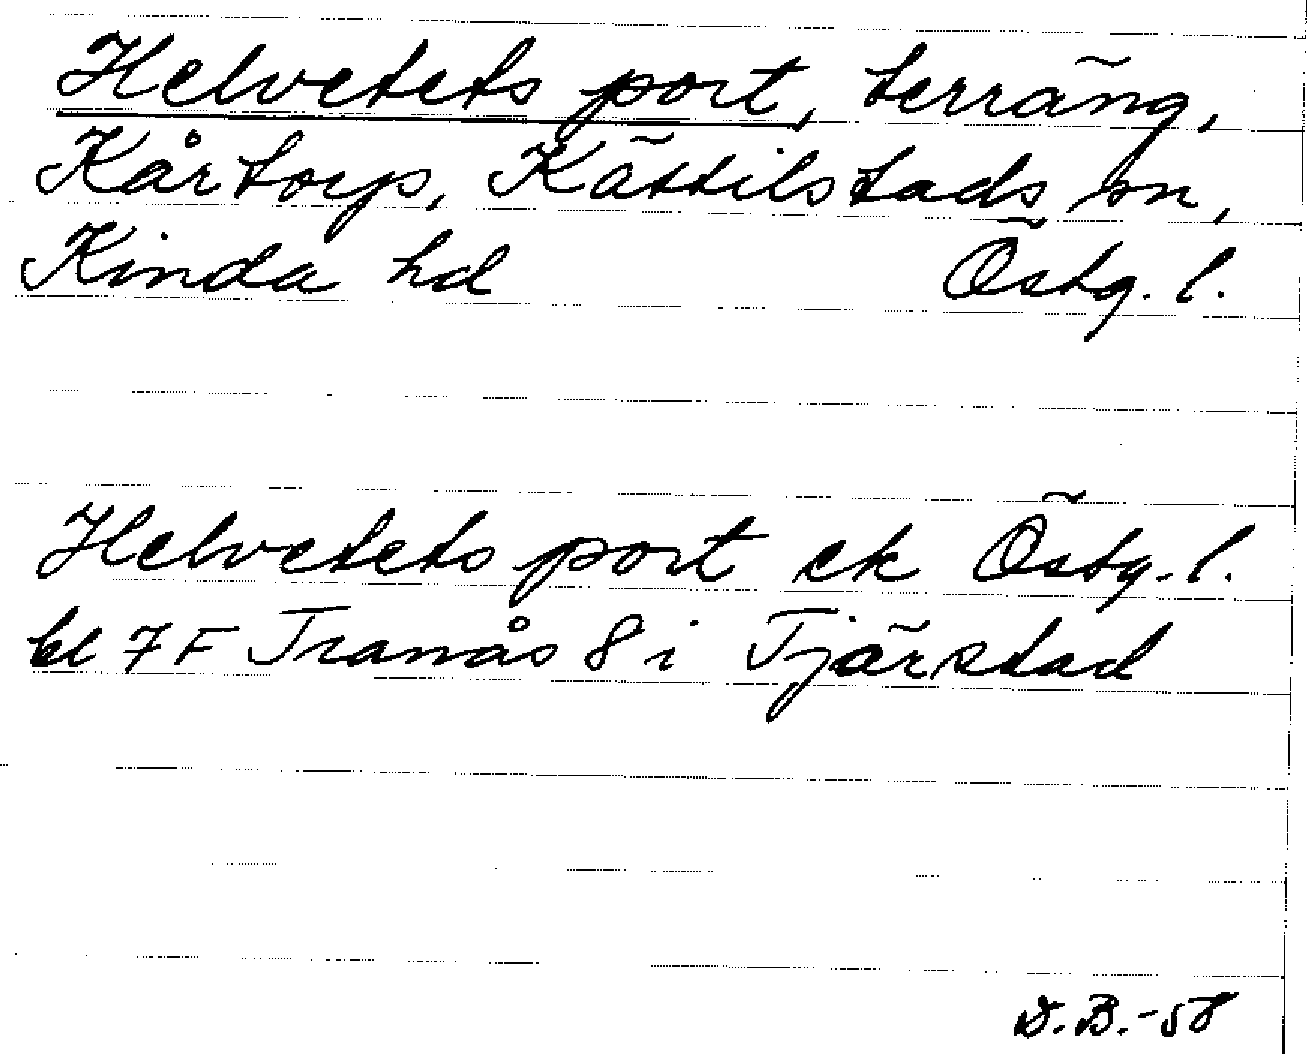 Helvetets port, terräng,
Kårtorp, Kättilstads sn,
Kinda hd Östg. l.
Helvetets port ek Östg. l.
bl 7 F Tranås 8 i Tjärstad
D.B.-58